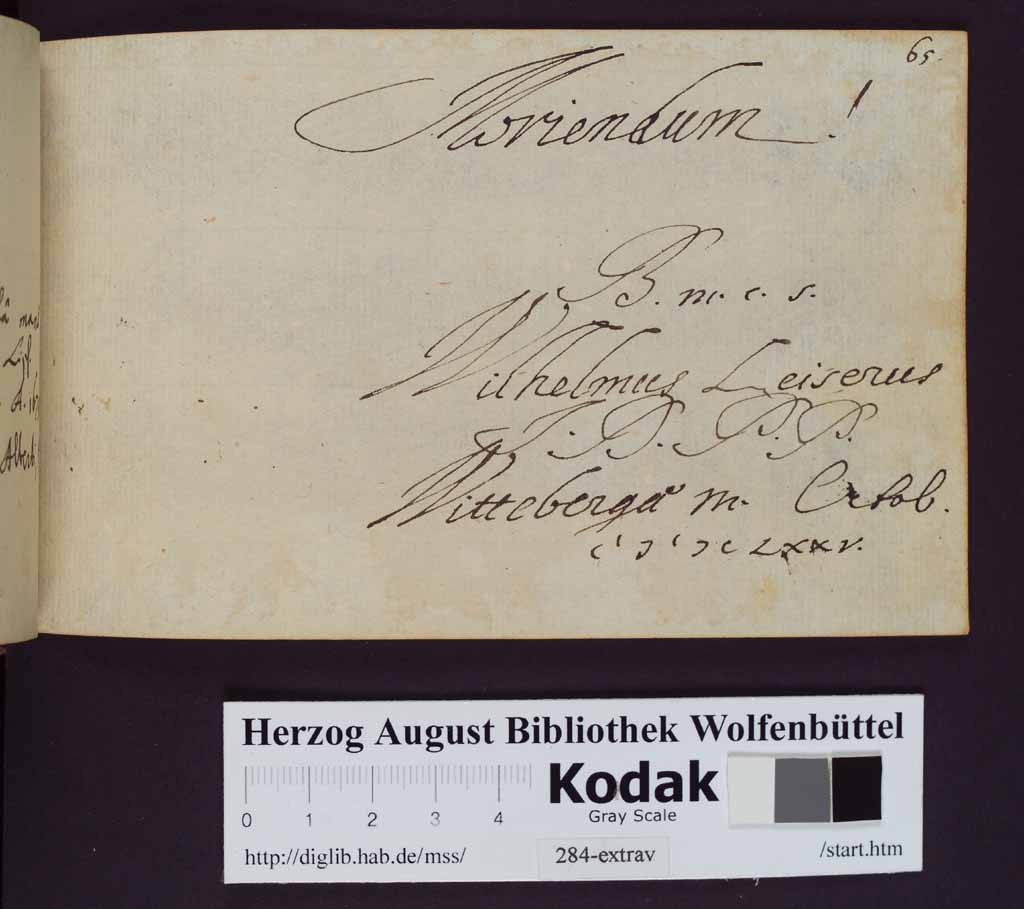 65.
Moriendum!
B. m. c. s.
Wilhelmus Leiserus
J. D. P. P.
Wittebergæ m. Octob.
c I ɔ I ɔ c LXXV.
Lips.
Albert
Herzog August Bibliothek Wolfenbüttel
Kodak
Gray Scale
0 1 2 3 4
http://diglib.hab.de/mss/
284-extrav
/start.htm